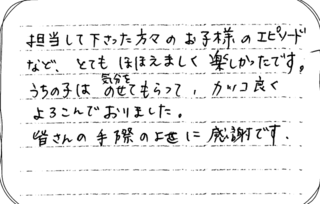 担当して下さった方々のお子様のエピソード
など、とてもほほえましく楽しかったです。
うちの子は気分をのせてもらって、カッコ良く
よろこんでおりました。
皆さんの手際の良さに感謝です.